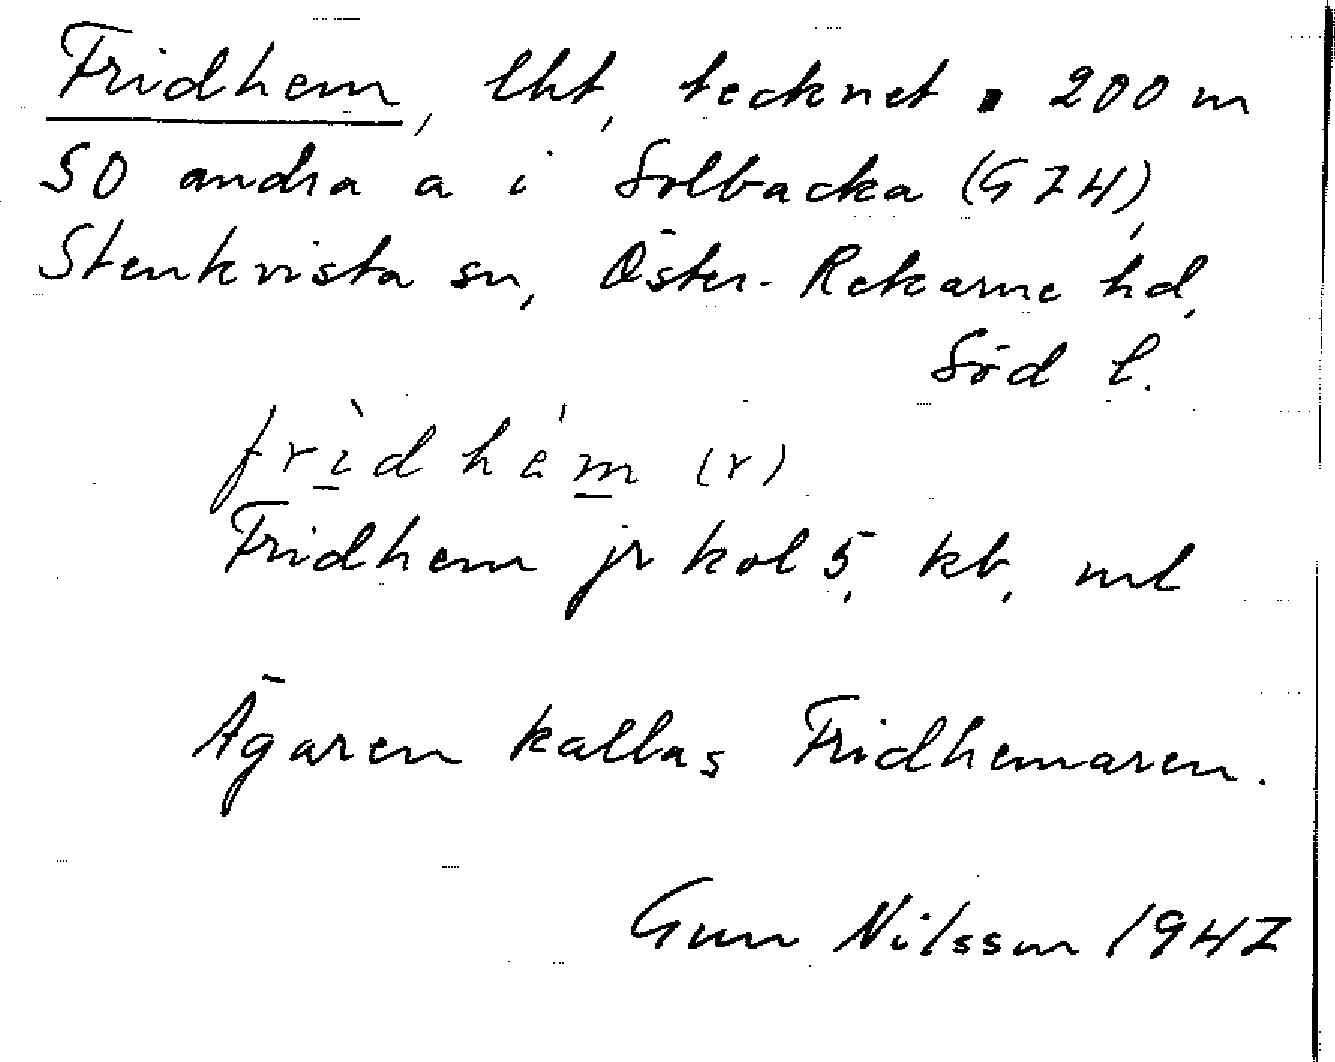 Fridhem, lht, tecknat ▪ 200 m
SO andra a i Solbacka (G74),
Stenkvista sn, Öster-Rekarne hd,
Söd l.
frìdhém (r)
Fridhem jr kol 5, kb, ml
Ägaren kallas Fridhemaren.
Gun Nilsson 1947